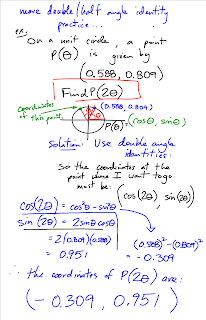 more double/half angle identity
practice...
ex:
On a unit circle, a point
P(θ) is given by
(0.588, 0.809)
Find P(2θ)
coordinates
of this point
(0.588, 0.809)
P(θ) = (cosθ, sinθ)
Solution: Use double angle
identities:
So the coordinates of the
point where I want to go
must be: (cos(2θ), sin(2θ))
cos(2θ) = cos²θ - sin²θ
sin(2θ) = 2sinθcosθ
= 2(0.809)(0.588)
= 0.951
(0.588)² - (0.809)²
= -0.309
∴ the coordinates of P(2θ) are:
(-0.309, 0.951)